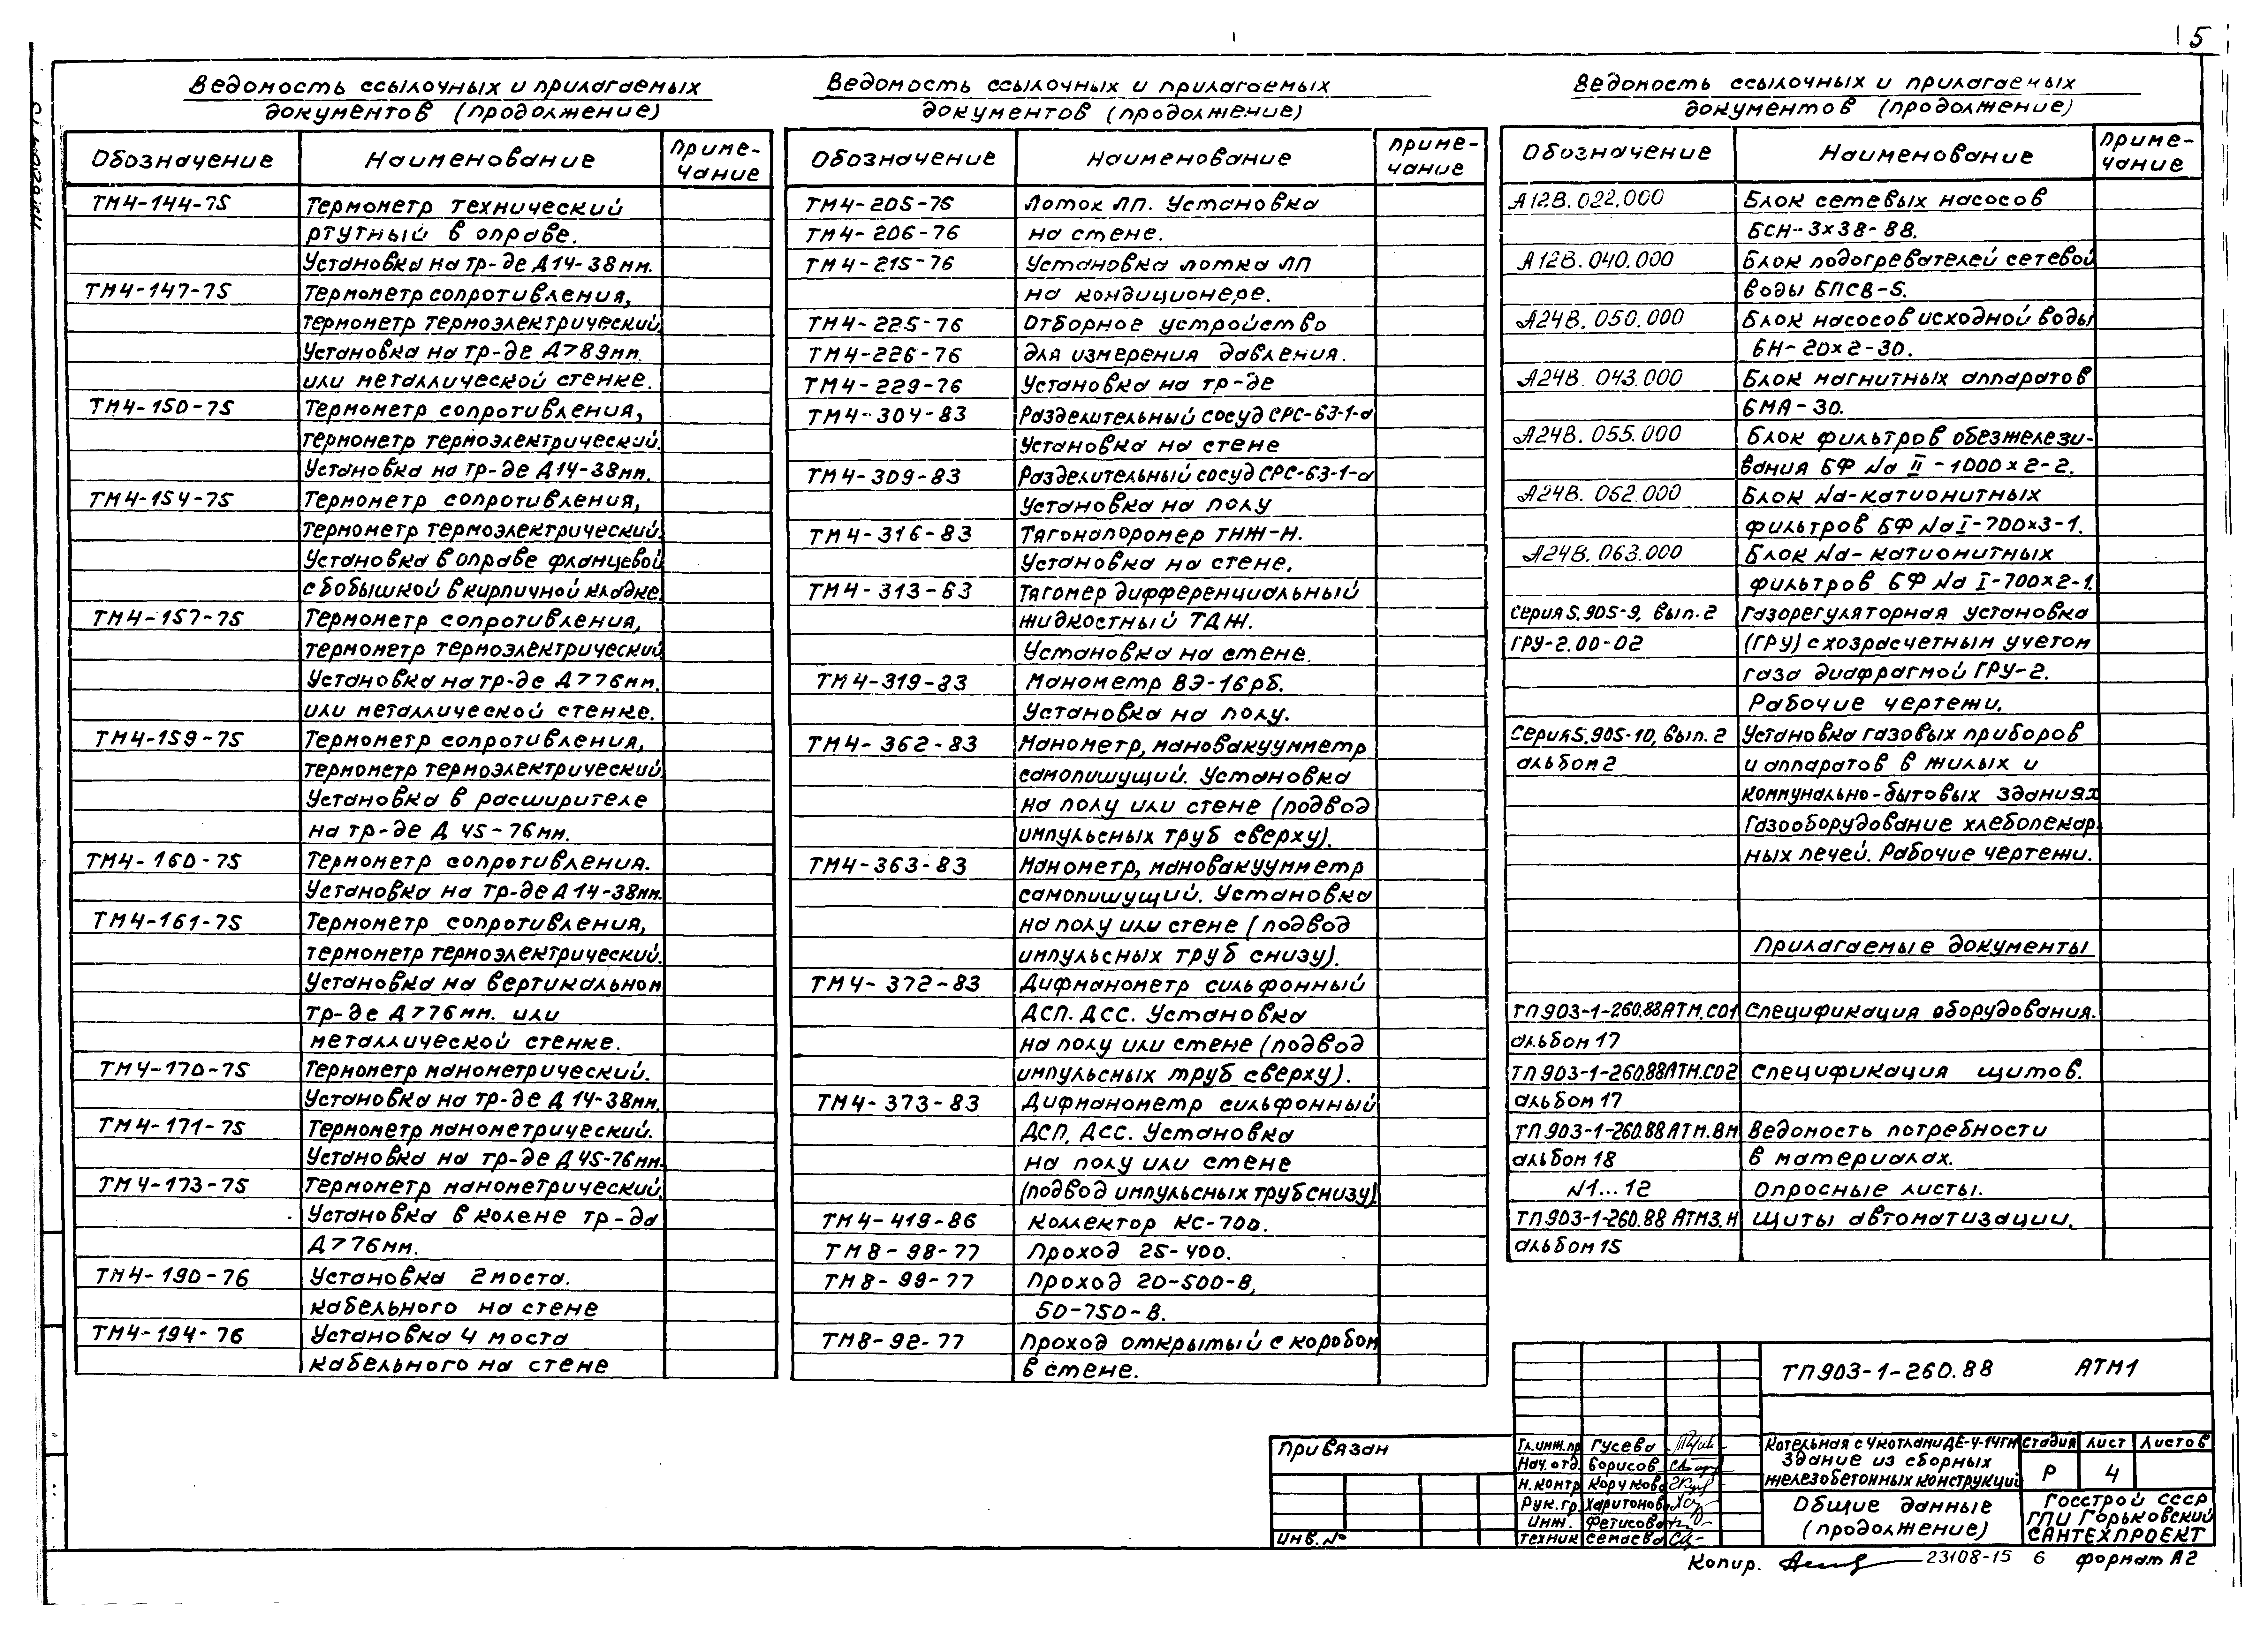 5
Ведомость ссылочных и прилагаемых
документов (продолжение)
Обозначение Наименование Приме-
чание
ТМ4-144-75 Термометр технический
ртутный в оправе.
Установка на тр-де Д14-38мм.
ТМ4-147-75 Термометр сопротивления,
термометр термоэлектрический.
Установка на тр-де Д>89мм.
или металлической стенке.
ТМ4-150-75 Термометр сопротивления,
термометр термоэлектрический.
Установка на тр-де Д14-38мм.
ТМ4-154-75 Термометр сопротивления,
термометр термоэлектрический.
Установка в оправе фланцевой
с бобышкой в кирпичной кладке.
ТМ4-157-75 Термометр сопротивления,
термометр термоэлектрический
Установка на тр-де Д>76мм.
или металлической стенке.
ТМ4-159-75 Термометр сопротивления,
термометр термоэлектрический.
Установка в расширителе
на тр-де Д 45-76мм.
ТМ4-160-75 Термометр сопротивления.
Установка на тр-де Д14-38мм.
ТМ4-161-75 Термометр сопротивления,
термометр термоэлектрический.
Установка на вертикальном
тр-де Д>76мм. или
металлической стенке.
ТМ4-170-75 Термометр манометрический.
Установка на тр-де Д 14-38мм.
ТМ4-171-75 Термометр манометрический.
Установка на тр-де Д45-76мм.
ТМ4-173-75 Термометр манометрический.
Установка в колене тр-да
Д>76мм.
ТМ4-190-76 Установка 2моста.
кабельного на стене
ТМ4-194-76 Установка 4 моста
кабельного на стене
Ведомость ссылочных и прилагаемых
документов (продолжение)
Обозначение Наименование Приме-
чание
ТМ4-205-76 Лоток ЛП. Установка
ТМ4-206-76 на стене.
ТМ4-215-76 Установка лотка ЛП
на кондиционере.
ТМ4-225-76 Отборное устройство
ТМ4-226-76 для измерения давления.
ТМ4-229-76 Установка на тр-де
ТМ4-304-83 Разделительный сосуд СРС-63-1-а
Установка на стене
ТМ4-309-83 Разделительный сосуд СРС-63-1-а
Установка на полу
ТМ4-316-83 Тягонапоромер ТНЖ-Н.
Установка на стене.
ТМ4-313-83 Тягомер дифференциальный
жидкостный ТДЖ.
Установка на стене.
ТМ4-319-83 Манометр ВЭ-16рб.
Установка на полу.
ТМ4-362-83 Манометр, мановакуумметр
самопишущий. Установка
на полу или стене (подвод
импульсных труб сверху).
ТМ4-363-83 Манометр, мановакуумметр
самопишущий. Установка
на полу или стене (подвод
импульсных труб снизу).
ТМ4-372-83 Дифманометр сильфонный
ДСП. ДСС. Установка
на полу или стене (подвод
импульсных труб сверху).
ТМ4-373-83 Дифманометр сильфонный
ДСП, ДСС. Установка
на полу или стене
(подвод импульсных труб снизу).
ТМ4-419-86 Коллектор КС-700.
ТМ8-98-77 Проход 25-400.
ТМ8-99-77 Проход 20-500-В,
50-750-В.
ТМ8-92-77 Проход открытый с коробом
в стене.
Ведомость ссылочных и прилагаемых
документов (продолжение)
Обозначение Наименование Приме-
чание
А12В.022.000 Блок сетевых насосов
БСН-3х38-88.
А12В.040.000 Блок подогревателей сетевой
воды БПСВ-5.
А24В.050.000 Блок насосов исходной воды
БН-20х2-30.
А24В.043.000 Блок магнитных аппаратов
БМА-30.
А24В.055.000 Блок фильтров обезжелези-
вания БФ Na II-1000х2-2.
А24В.062.000 Блок Na-катионитных
фильтров БФ Na I-700х3-1.
А24В.063.000 Блок Na-катионитных
фильтров БФ Na I-700х2-1.
Серия 5.905-9, вып.2 Газорегуляторная установка
ГРУ-2.00-02 (ГРУ) с хозрасчетным учетом
газа диафрагмой ГРУ-2.
Рабочие чертежи.
Серия 5.905-10, вып.2 Установка газовых приборов
альбом 2 и аппаратов в жилых и
коммунально-бытовых зданиях
Газооборудование хлебопекар-
ных печей. Рабочие чертежи.
Прилагаемые документы
ТП903-1-260.88АТМ.СО1 Спецификация оборудования.
альбом 17
ТП903-1-260.88АТМ.СО2 Спецификация щитов.
альбом 17
ТП903-1-260.88АТМ.ВМ Ведомость потребности
альбом 18 в материалах.
N1...12 Опросные листы.
ТП903-1-260.88 АТМ3.Н Щиты автоматизации.
альбом 15
ТП903-1-260.88 АТМ1
Привязан
Инв.№
Гл.инж.пр Гусева
Нач.отд. Борисов
Н.контр Корукова
Рук.гр. Харитонова
Инж. Фетисова
Техник Семаева
Котельная с 4 котлами ДЕ-4-14ГМ
Здание из сборных
железобетонных конструкций
Стадия Лист Листов
Р 4
Общие данные
(продолжение)
Госстрой СССР
ГПИ Горьковский
САНТЕХПРОЕКТ
Копир. 23108-15 6 формат А2